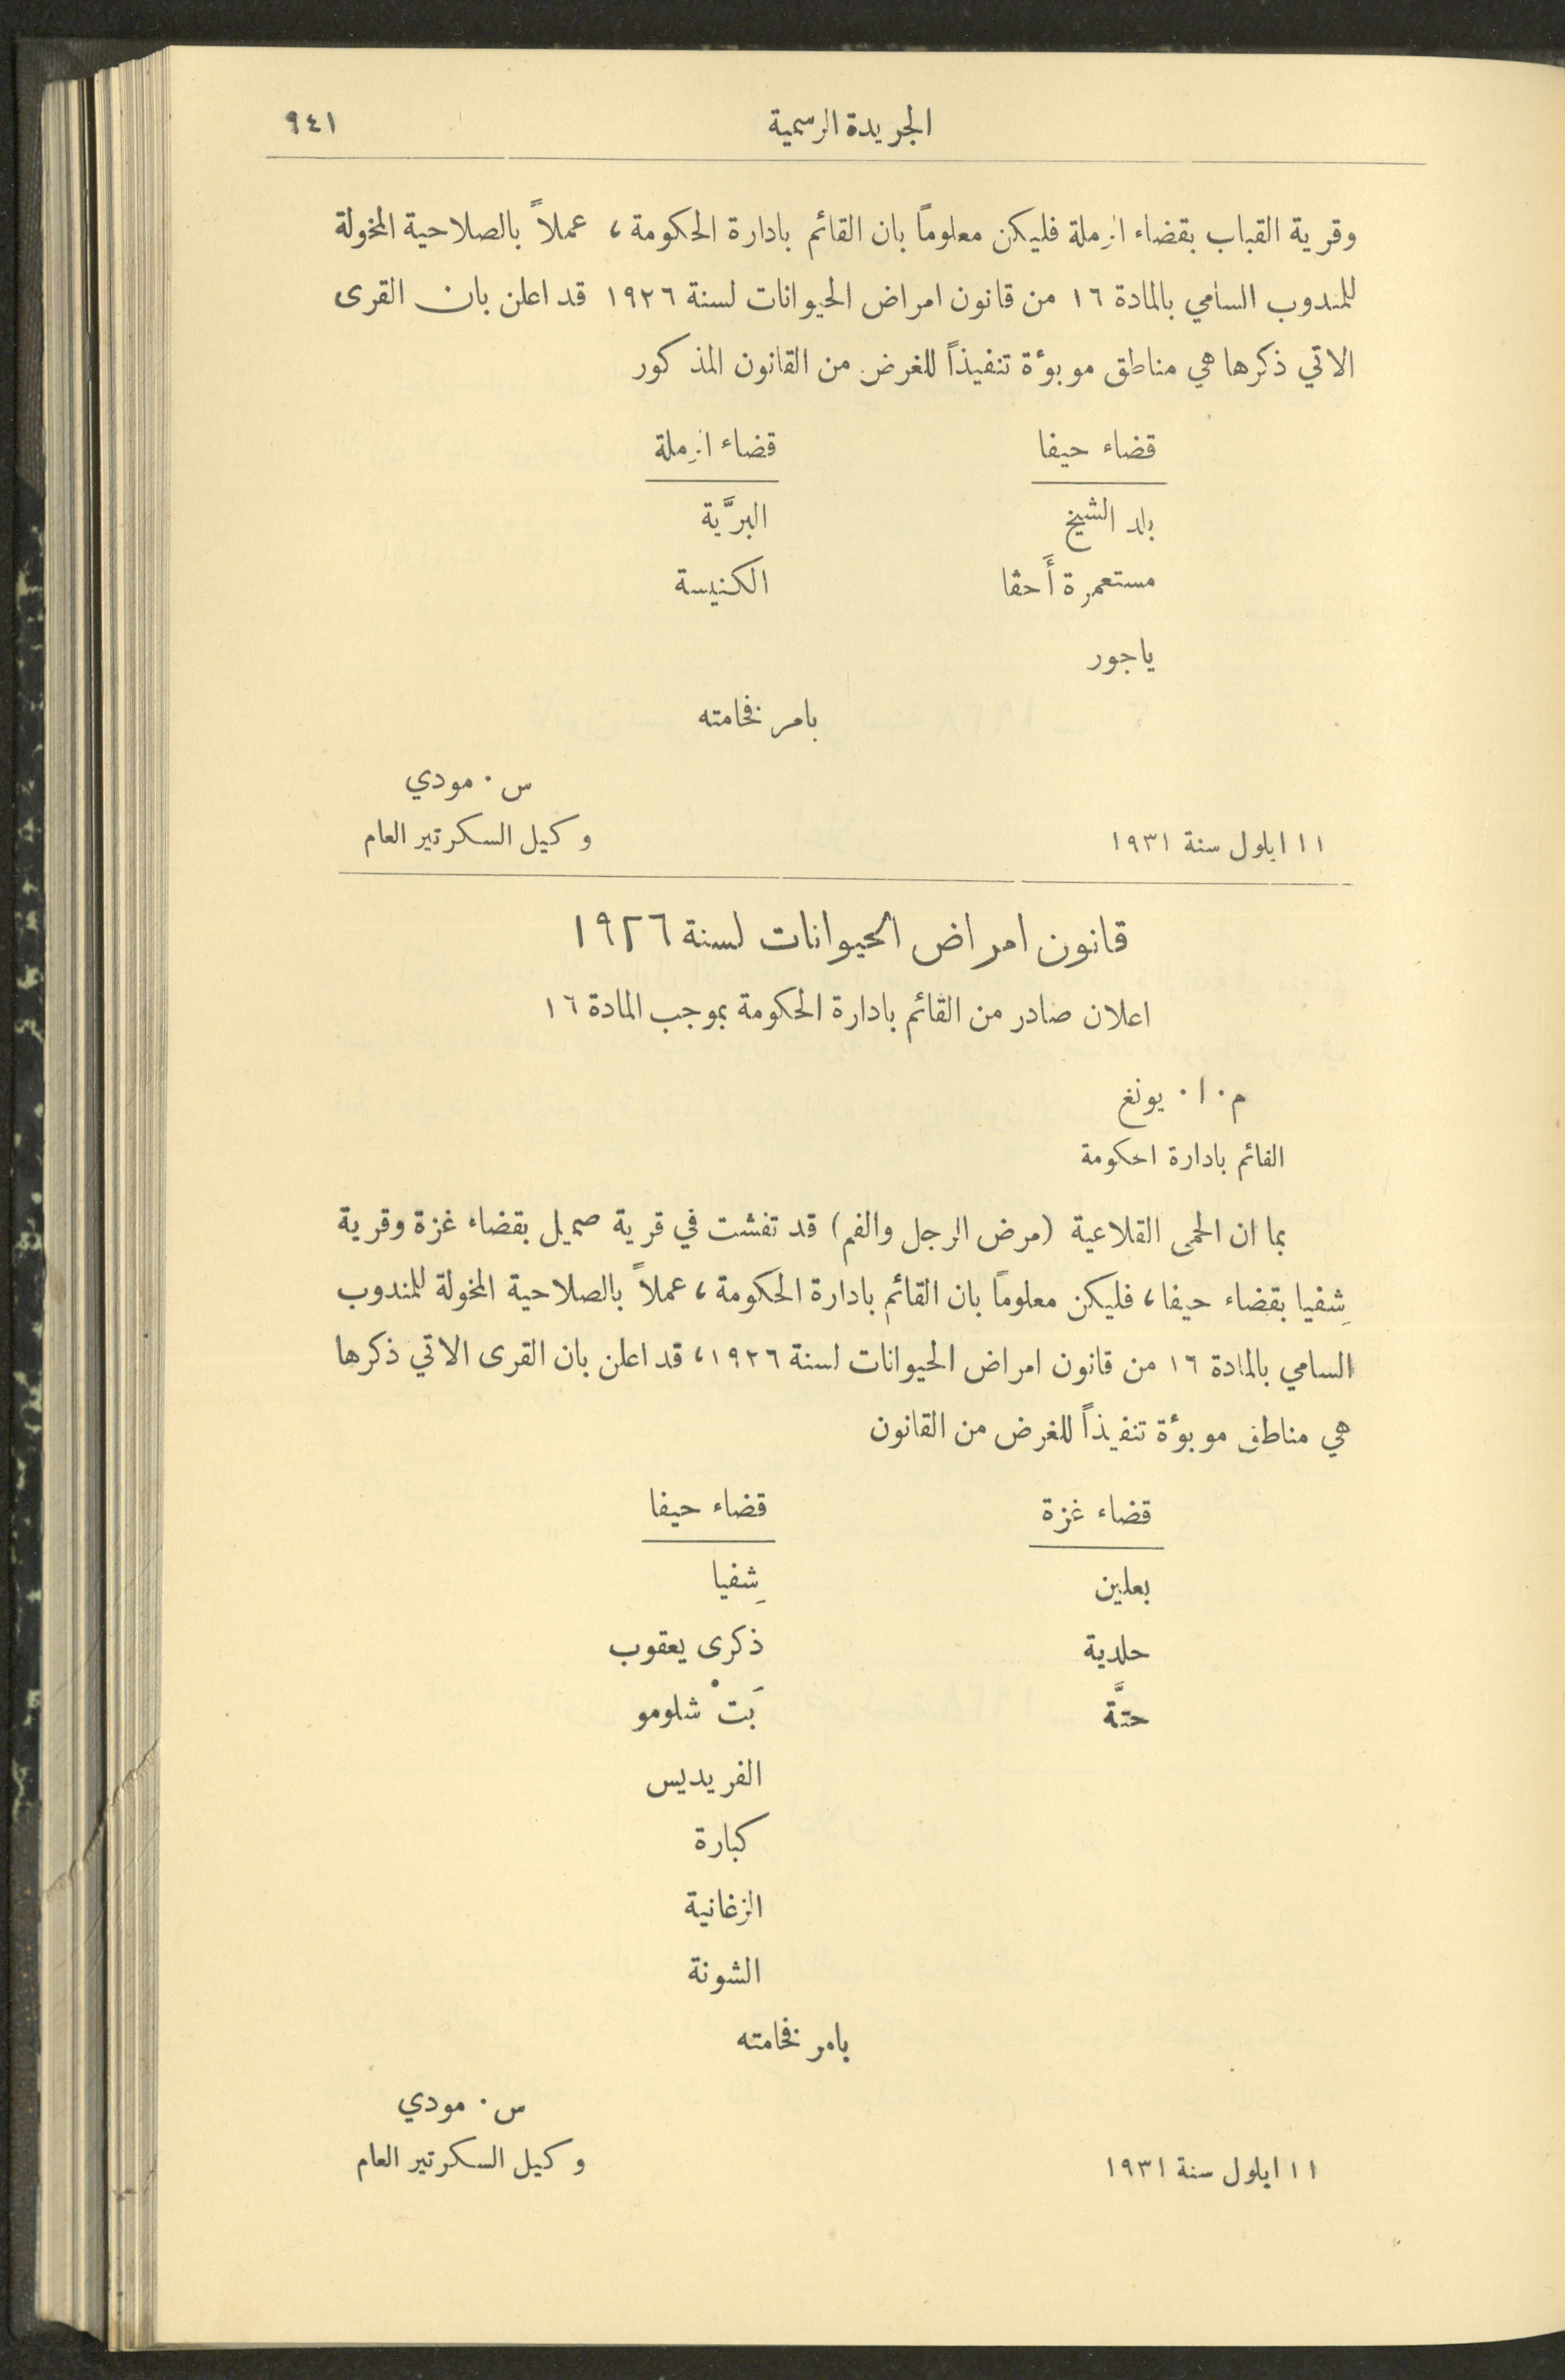 الجريدة الرسمية ٩٤١
وقرية القباب بقضاء الرملة فليكن معلوماً بان القائم بادارة الحكومة، عملاً بالصلاحية المخولة
للمندوب السامي بالمادة ١٦ من قانون امراض الحيوانات لسنة ١٩٢٦ قد اعلن بان القرى
الاتي ذكرها هي مناطق موبوئة تنفيذاً للغرض من القانون المذكور
قضاء حيفا قضاء الرملة
بلد الشيخ البرَّية
مستعمرة أَحڤا الكنيسة
ياجور
بامر فخامته
س. مودي
١١ ايلول سنة ١٩٣١ وكيل السكرتير العام
قانون امراض الحيوانات لسنة ١٩٢٦
اعلان صادر من القائم بادارة الحكومة بموجب المادة ١٦
م. ا. يونغ
القائم بادارة الحكومة
بما ان الحمى القلاعية (مرض الرجل والفم) قد تفشت في قرية صميل بقضاء غزة وقرية
شِفيا بقضاء حيفا، فليكن معلوماً بان القائم بادارة الحكومة، عملاً بالصلاحية المخولة للمندوب
السامي بالمادة ١٦ من قانون امراض الحيوانات لسنة ١٩٢٦، قد اعلن بان القرى الاتي ذكرها
هي مناطق موبوئة تنفيذاً للغرض من القانون
قضاء غزة قضاء حيفا
بعلين شِفيا
جلدية ذكرى يعقوب
حتَّة بَتْ شلومو
الفريديس
كبارة
الزغانية
الشونة
بامر فخامته
س. مودي
١١ ايلول سنة ١٩٣١ وكيل السكرتير العام